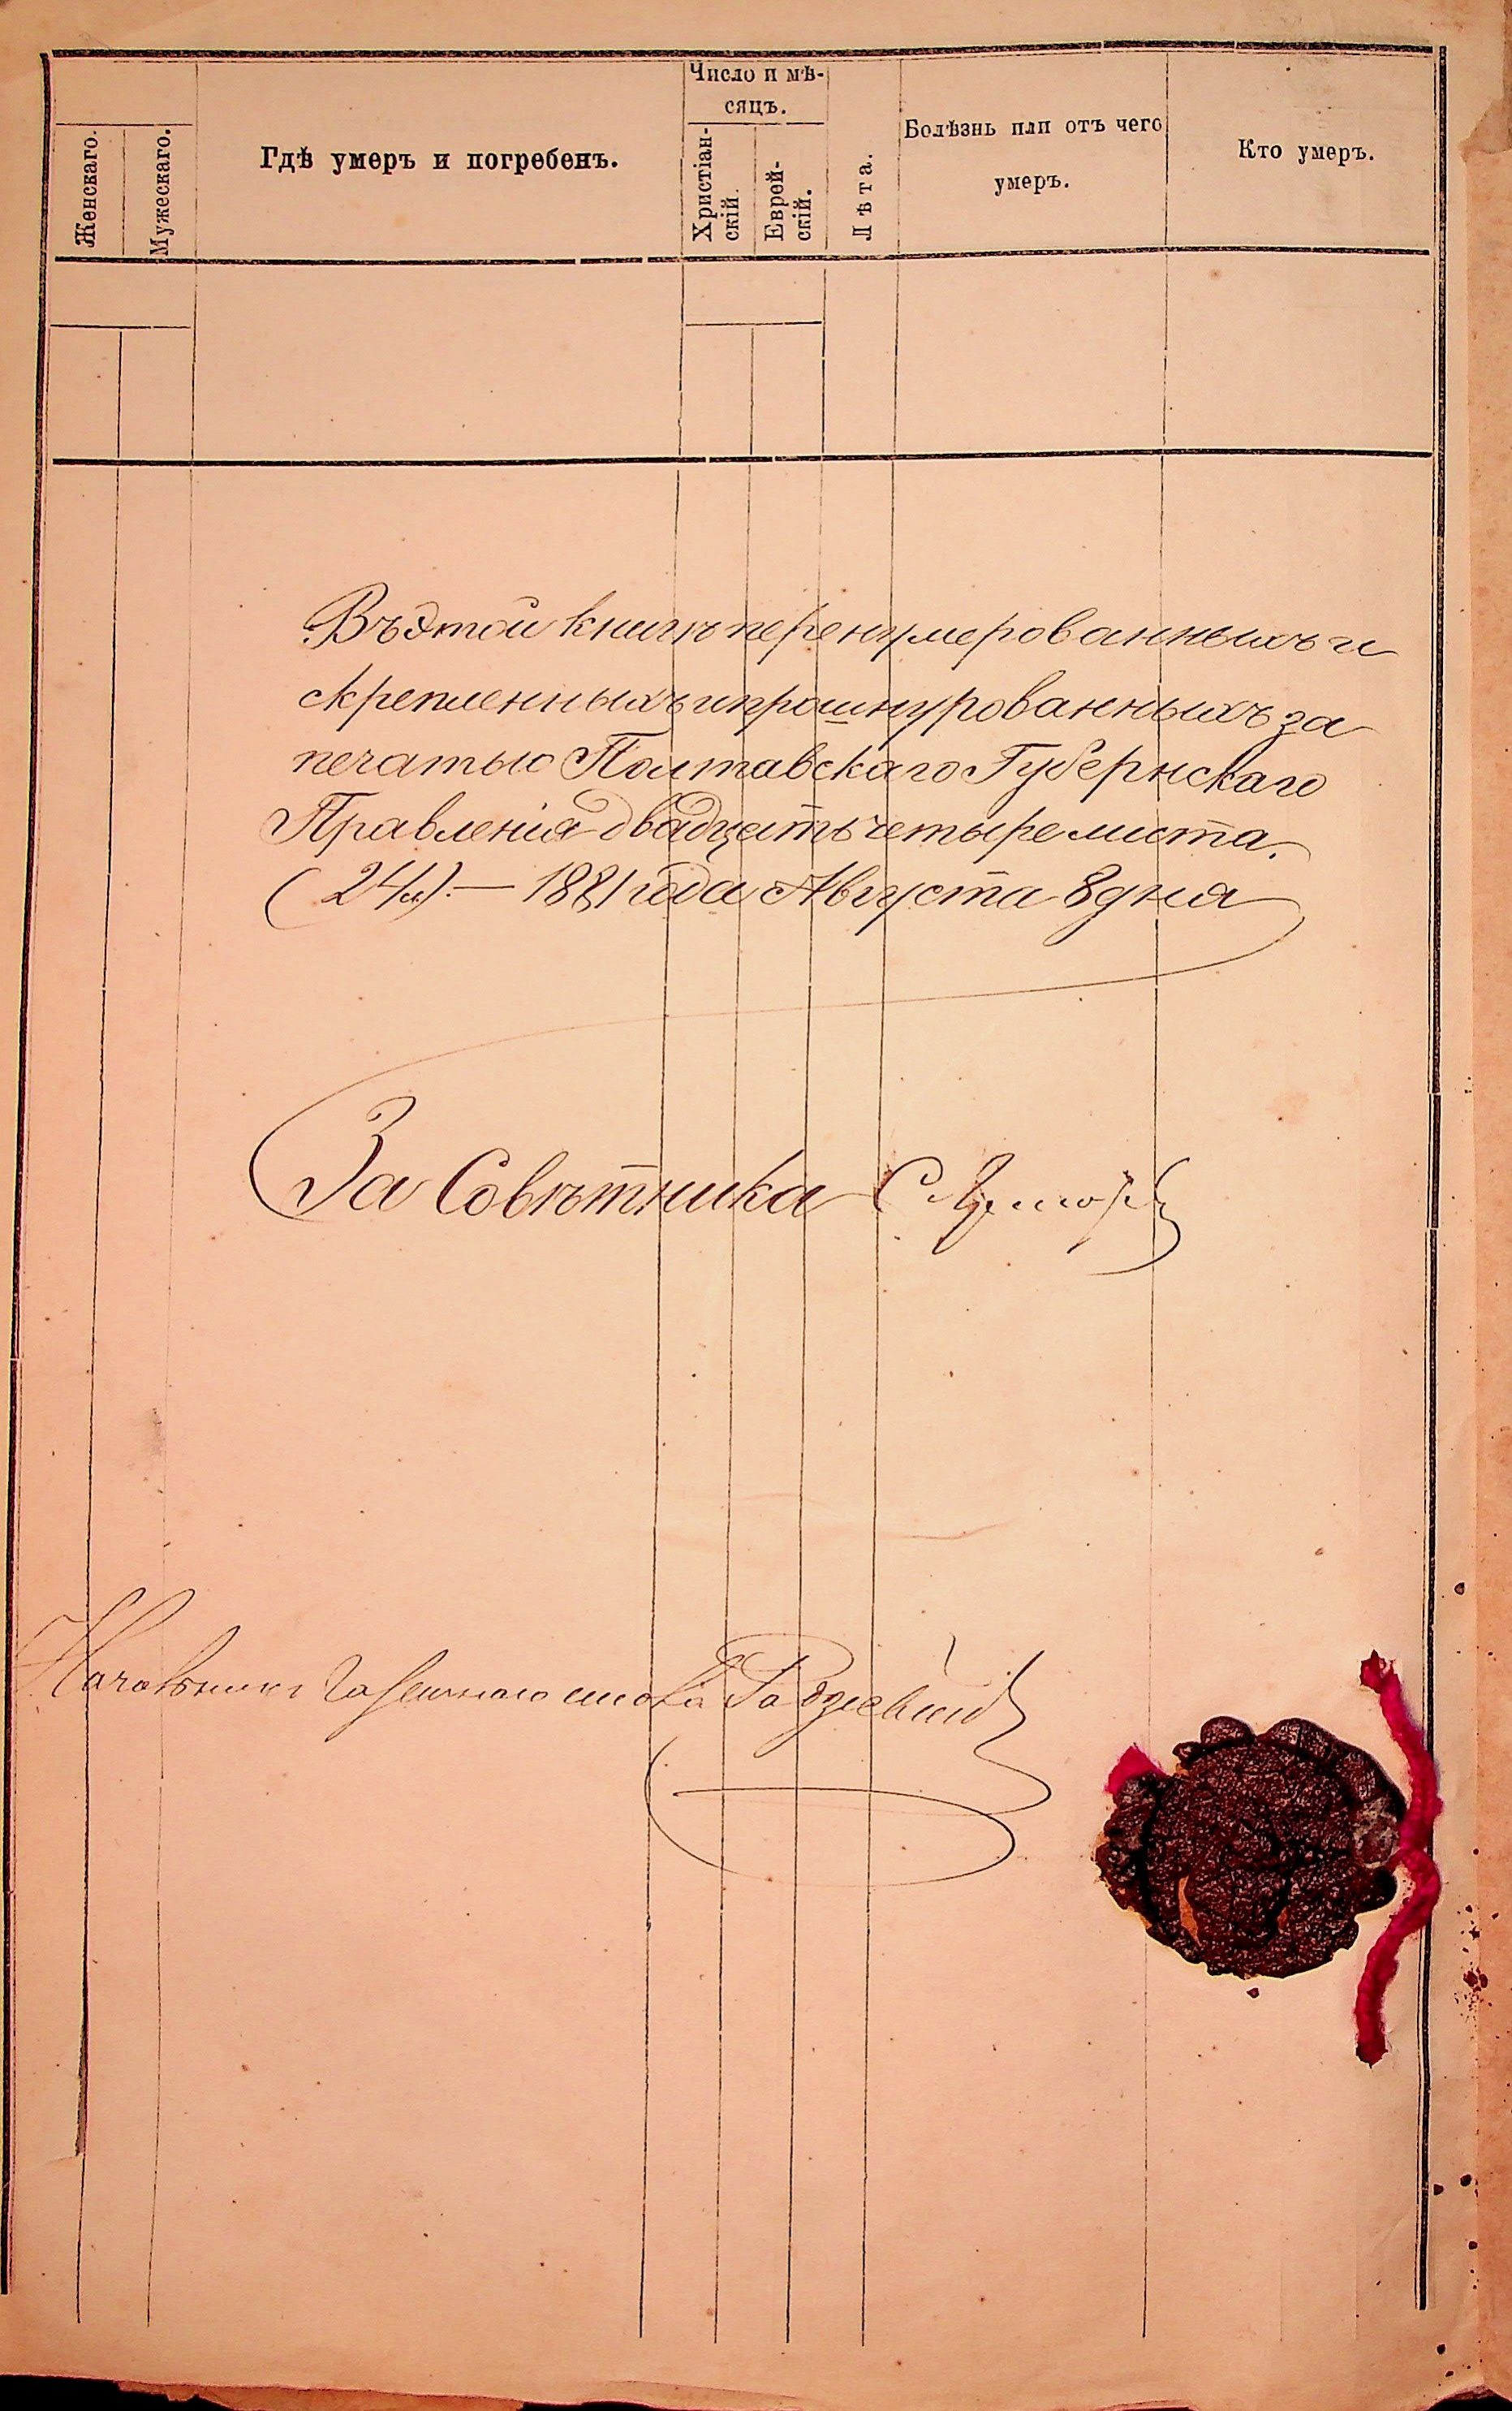 Женскаго.
Мужескаго.
Гдѣ умеръ и погребенъ.
Число и мѣ-
сяцъ.
Христіан-
скій.
Еврей-
скій.
Лѣта.
Болѣзнь или отъ чего
умеръ.
Кто умеръ.
Въ этой книгѣ перенумерованныхъ и
скрепленныхъ и прошнурованныхъ за
печатью Полтавскаго Губернскаго
Правленія двадцать четыре листа.
(24 л.) — 1881 года Августа 8 дня
За Совѣтника
Начальникъ Газетнаго стола